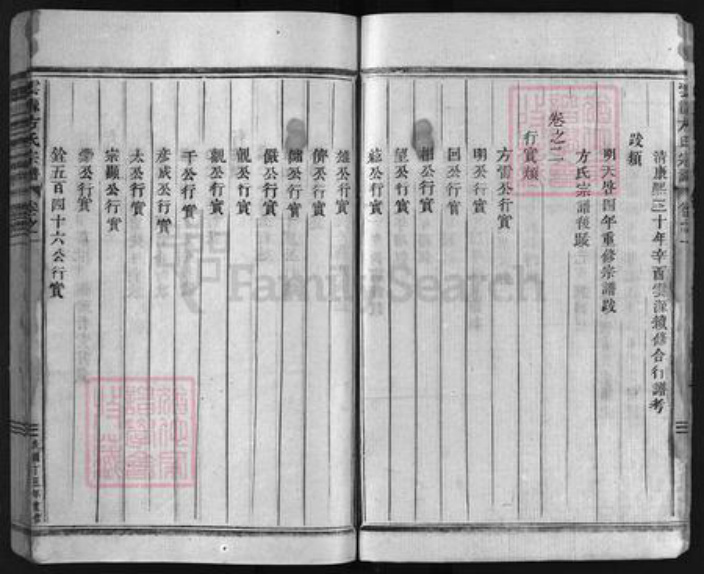 清康熙三十年辛酉雲源續修合行譜考
跋類
明天啓四年重修宗譜跋
方氏宗譜後跋
卷之二
行實類
方雷公行實
明公行實
回公行實
相公行實
望公行實
紘公行實
雄公行實
儕公行實
儲公行實
儼公行實
覬公行實
觀公行實
干公行實
彥成公行實
太公行實
宗顯公行實
公行實
銓五百四十六公行實
方氏宗譜
卷之一
FamilySearch